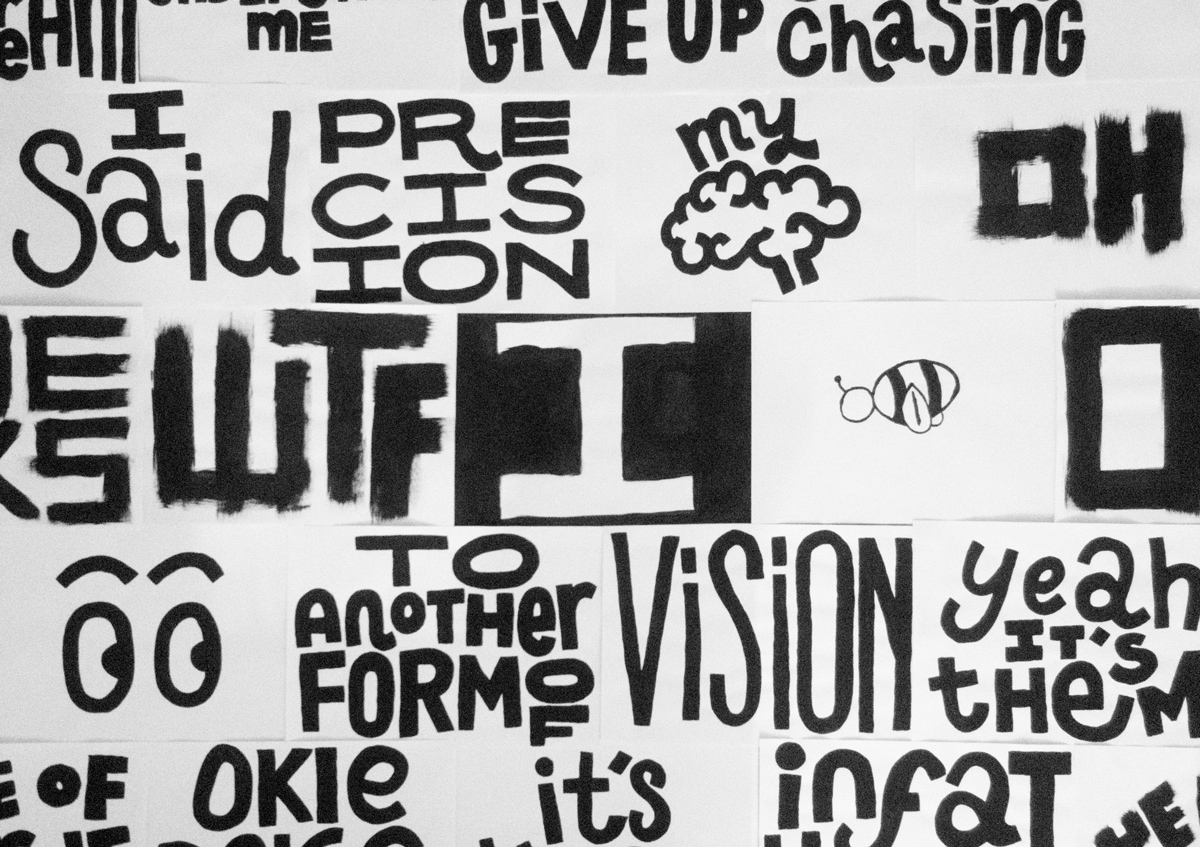 ME
GiVE UP
chaSing
I
Said
PRE
CIS
ION
my
OH
WTF
I
TO
AnoTHer
FORM OF
ViSiON
yeah
IT'S
tHeM
OF
OKIe
it's
infaT